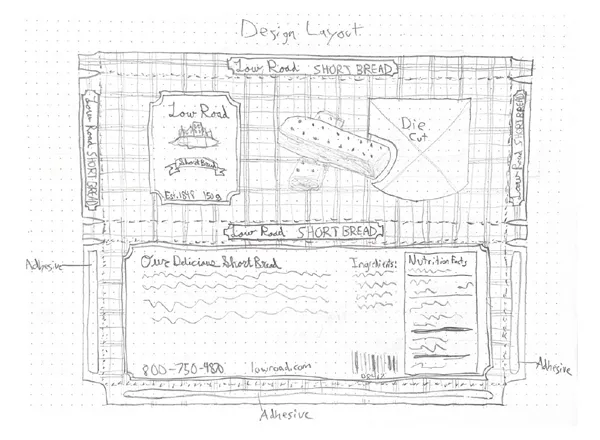 Design Layout
Low Road SHORT BREAD
Low Road SHORT BREAD
Low Road
Short Bread
Est. 1848 150g
Die
Cut
Low Road SHORT BREAD
Low Road SHORT BREAD
Adhesive
Our Delicious Short Bread
Ingredients:
Nutrition Facts
800-750-4820
lowroad.com
Adhesive
Adhesive